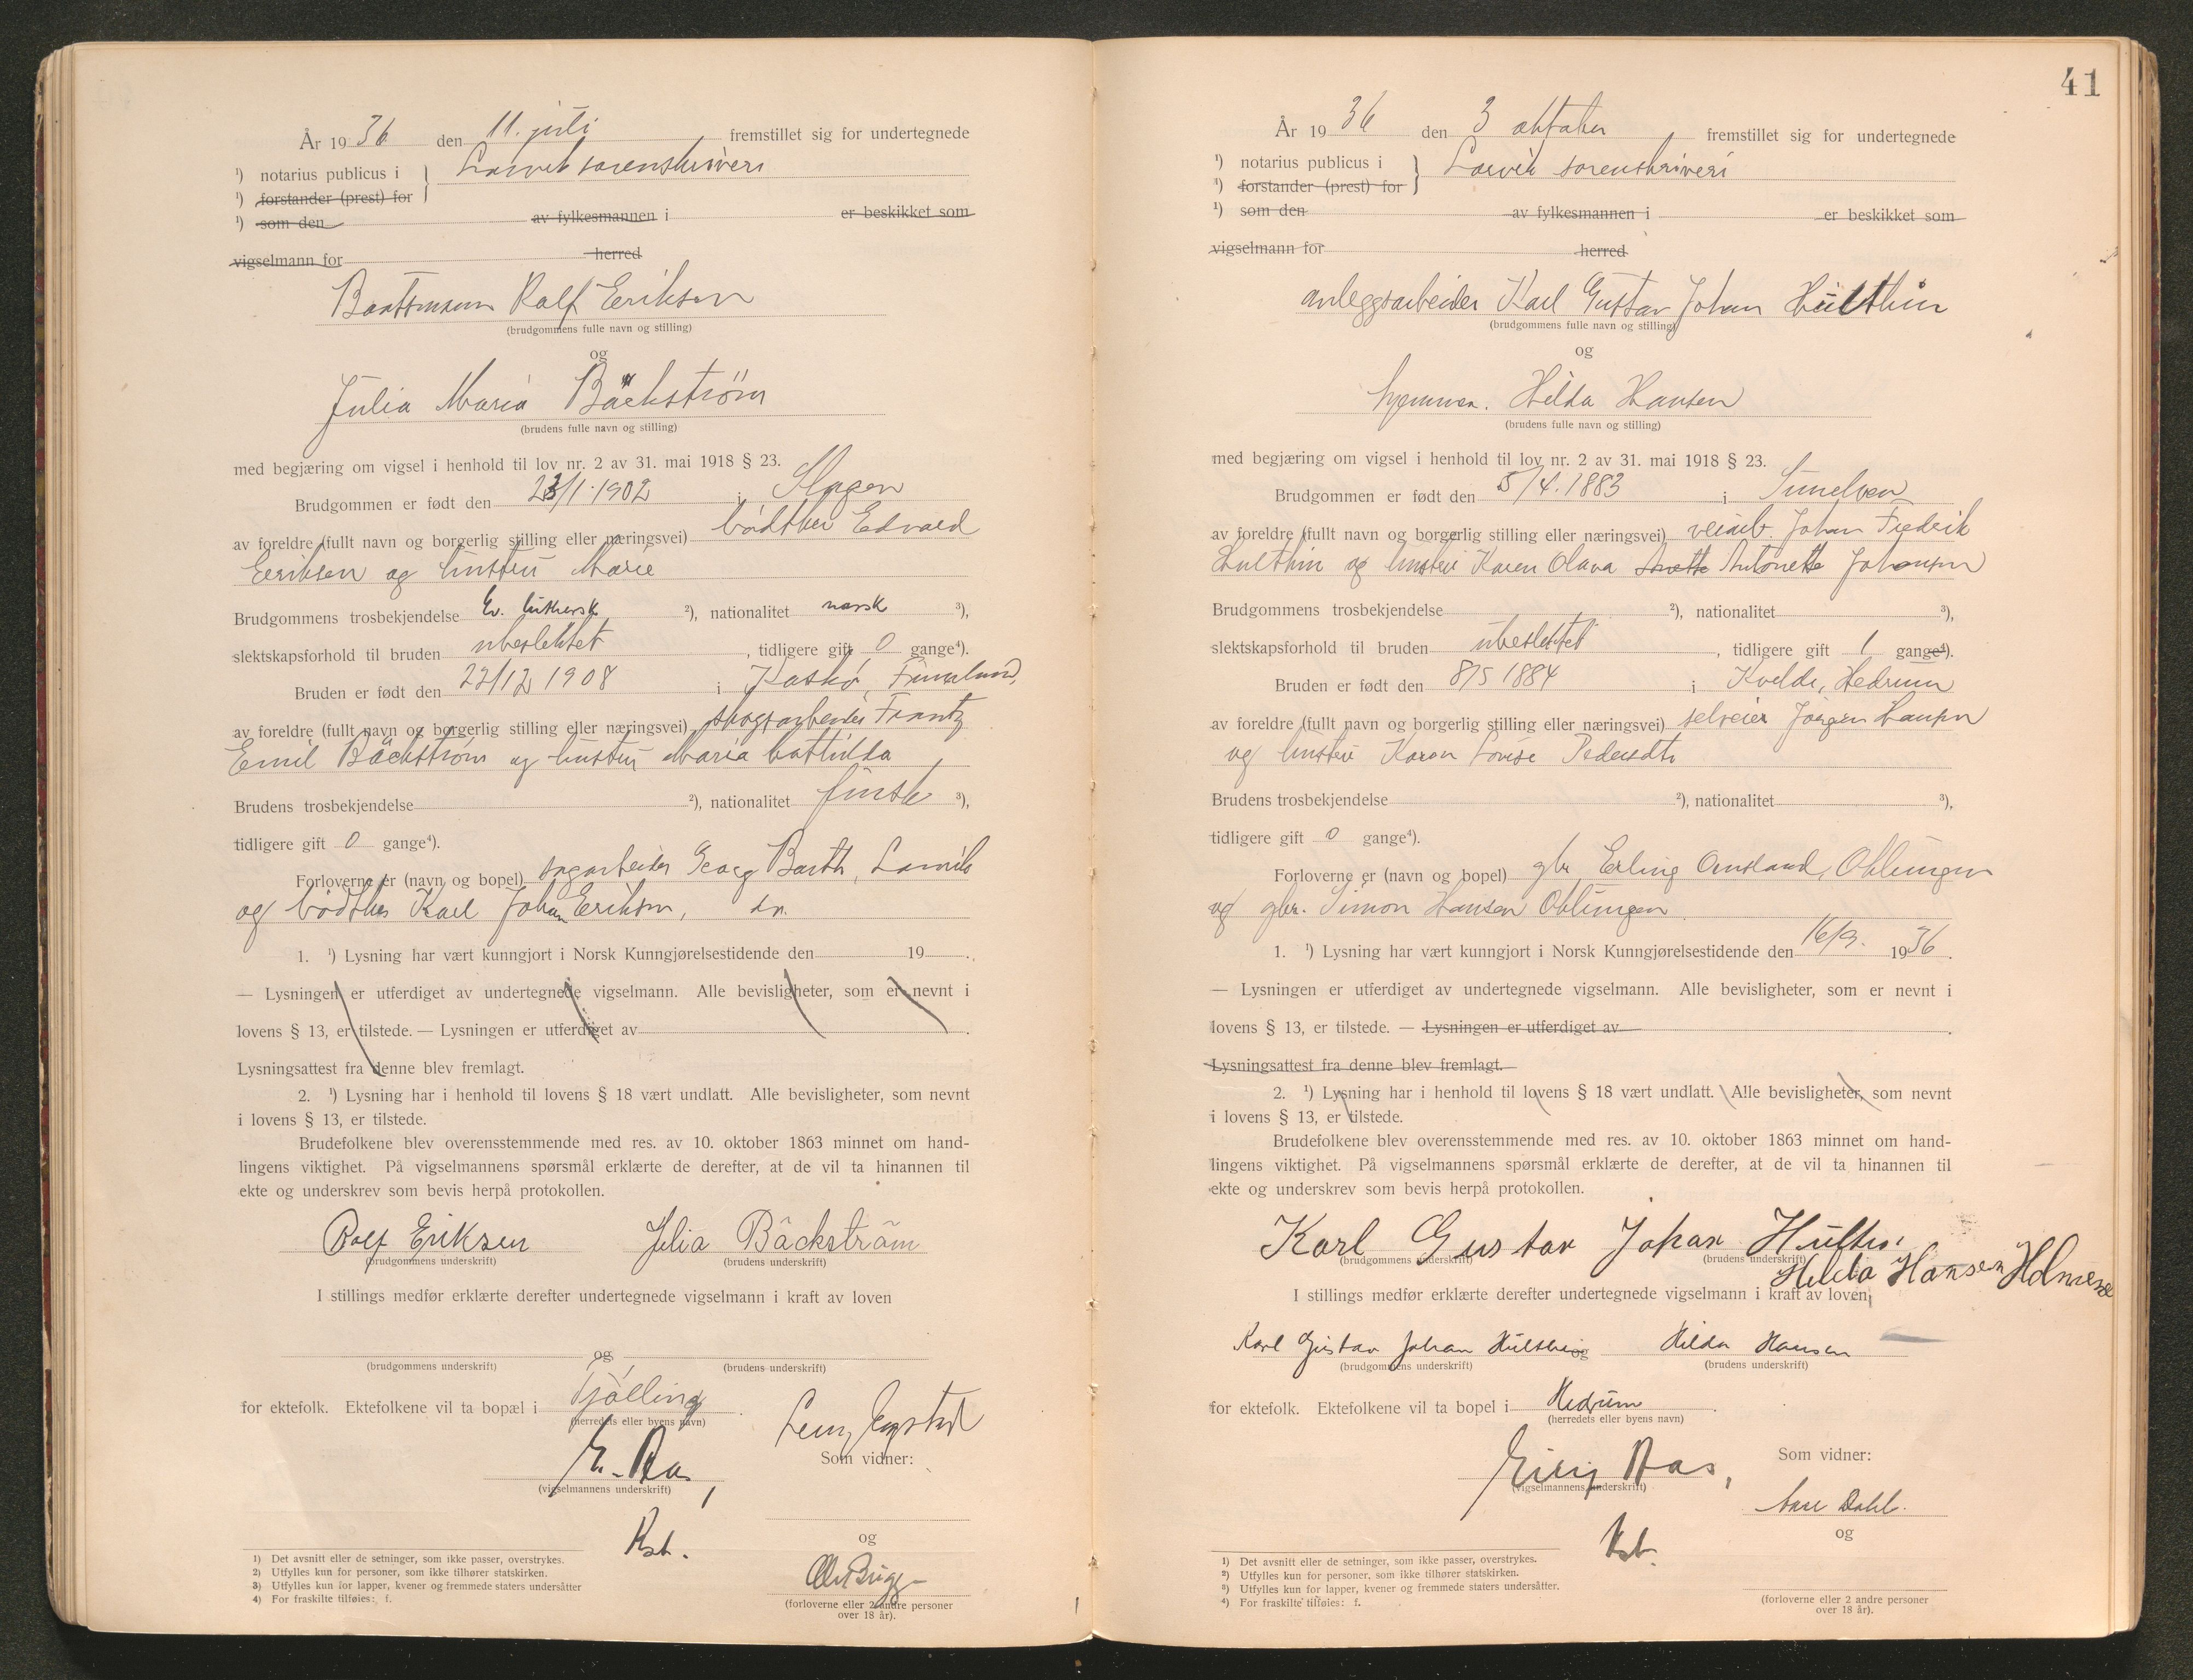 År 1936 den 11. juli fremstillet sig for undertegnede
¹) notarius publicus i } Larvik sorenskriveri
¹) forstander (prest) for
¹) som den av fylkesmannen i er beskikket som
vigselmann for herred
Baatsmann Rolf Eriksen
(brudgommens fulle navn og stilling)
og
Julia Maria Bäckström
(brudens fulle navn og stilling)
med begjæring om vigsel i henhold til lov nr. 2 av 31. mai 1918 § 23.
Brudgommen er født den 23/1.1902 i Slagen
av foreldre (fullt navn og borgerlig stilling eller næringsvei) bødtker Edvard
Eriksen og hustru Marie
Brudgommens trosbekjendelse Ev. luthersk ²), nationalitet norsk ³),
slektskapsforhold til bruden ubeslektet, tidligere gift 0 gange⁴).
Bruden er født den 22/12 1908 i Kaskö, Finnland,
av foreldre (fullt navn og borgerlig stilling eller næringsvei) skogsarbeider Frantz
Emil Bäckström og hustru Maria
Brudens trosbekjendelse ²), nationalitet finsk ³),
tidligere gift 0 gange⁴).
Forloverne er (navn og bopel) sagarbeider Georg Barth, Larvik
og bødtker Karl Johan Eriksen, sn.
1. ¹) Lysning har vært kunngjort i Norsk Kunngjørelsestidende den 19 .
— Lysningen er utferdiget av undertegnede vigselmann. Alle bevisligheter, som er nevnt i
lovens § 13, er tilstede. — Lysningen er utferdiget av .
Lysningsattest fra denne blev fremlagt.
2. ¹) Lysning har i henhold til lovens § 18 vært undlatt. Alle bevisligheter, som nevnt
i lovens § 13, er tilstede.
Brudefolkene blev overensstemmende med res. av 10. oktober 1863 minnet om hand-
lingens viktighet. På vigselmannens spørsmål erklærte de derefter, at de vil ta hinannen til
ekte og underskrev som bevis herpå protokollen.
Rolf Eriksen Julia Bäckström
(brudgommens underskrift) (brudens underskrift)
I stillings medfør erklærte derefter undertegnede vigselmann i kraft av loven
og
(brudgommens underskrift) (brudens underskrift)
for ektefolk. Ektefolkene vil ta bopæl i Tjølling.
(herredets eller byens navn)
E. Aas,
Som vidner:
(vigselmannens underskrift)
Kst.
og
(forloverne eller 2 andre personer
over 18 år).
1) Det avsnitt eller de setninger, som ikke passer, overstrykes.
2) Utfylles kun for personer, som ikke tilhører statskirken.
3) Utfylles kun for lapper, kvener og fremmede staters undersåtter
4) For fraskilte tilføies: f.
41
År 1936 den 3 oktober fremstillet sig for undertegnede
¹) notarius publicus i } Larvik sorenskriveri
¹) forstander (prest) for
¹) som den av fylkesmannen i er beskikket som
vigselmann for herred
anleggsarbeider Karl Gustav Johan Hulthin
(brudgommens fulle navn og stilling)
og
hjemmev. Hilda Hansen
(brudens fulle navn og stilling)
med begjæring om vigsel i henhold til lov nr. 2 av 31. mai 1918 § 23.
Brudgommen er født den 5/4.1883 i Sunelven
av foreldre (fullt navn og borgerlig stilling eller næringsvei) veiarb. Johan Fredrik
Hulthin og hustru Karen Olava Antonette Johansen
Brudgommens trosbekjendelse ²), nationalitet ³),
slektskapsforhold til bruden ubeslektet, tidligere gift 1 gange⁴).
Bruden er født den 8/5 1884 i Kvelde, Hedrum
av foreldre (fullt navn og borgerlig stilling eller næringsvei) selveier Jørgen Hansen
og hustru Karen Lovise Pedersdtr
Brudens trosbekjendelse ²), nationalitet ³),
tidligere gift 0 gange⁴).
Forloverne er (navn og bopel) gbr. Erling Omsland, Oklungen
og gbr. Simon Hansen Oklungen.
1. ¹) Lysning har vært kunngjort i Norsk Kunngjørelsestidende den 16/9. 1936.
— Lysningen er utferdiget av undertegnede vigselmann. Alle bevisligheter, som er nevnt i
lovens § 13, er tilstede. — Lysningen er utferdiget av .
Lysningsattest fra denne blev fremlagt.
2. ¹) Lysning har i henhold til lovens § 18 vært undlatt. Alle bevisligheter, som nevnt
i lovens § 13, er tilstede.
Brudefolkene blev overensstemmende med res. av 10. oktober 1863 minnet om hand-
lingens viktighet. På vigselmannens spørsmål erklærte de derefter, at de vil ta hinannen til
ekte og underskrev som bevis herpå protokollen.
Karl Gustav Johan Hulthin
(brudgommens underskrift) (brudens underskrift)
Hilda Hansen
I stillings medfør erklærte derefter undertegnede vigselmann i kraft av loven
Karl Gustav Johan Hulthin og Hilda Hansen
(brudgommens underskrift) (brudens underskrift)
for ektefolk. Ektefolkene vil ta bopel i Hedrum.
(herredets eller byens navn)
Aas, Som vidner:
(vigselmannens underskrift)
Aase Dahl.
Kst.
og
(forloverne eller 2 andre personer
over 18 år).
1) Det avsnitt eller de setninger, som ikke passer, overstrykes.
2) Utfylles kun for personer, som ikke tilhører statskirken.
3) Utfylles kun for lapper, kvener og fremmede staters undersåtter.
4) For fraskilte tilføies: f.